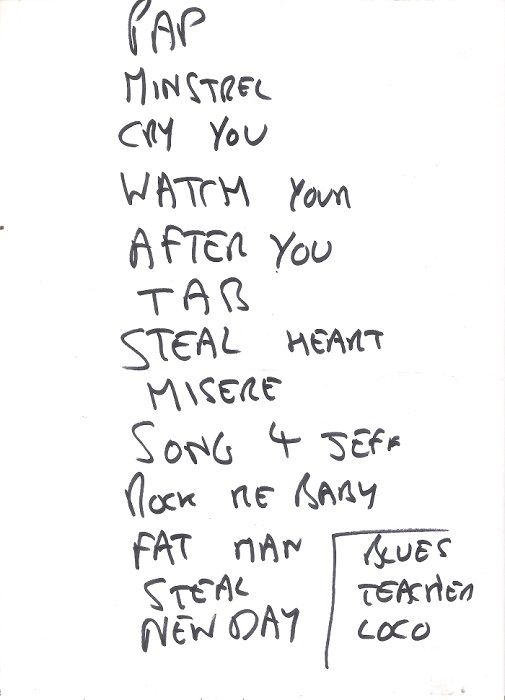 PAP
MINSTREL
CRY YOU
WATCH YOUR
AFTER YOU
TAB
STEAL HEART
MISERE
SONG 4 JEFF
ROCK ME BABY
FAT MAN
STEAL
NEW DAY
BLUES
TEACHER
LOCO